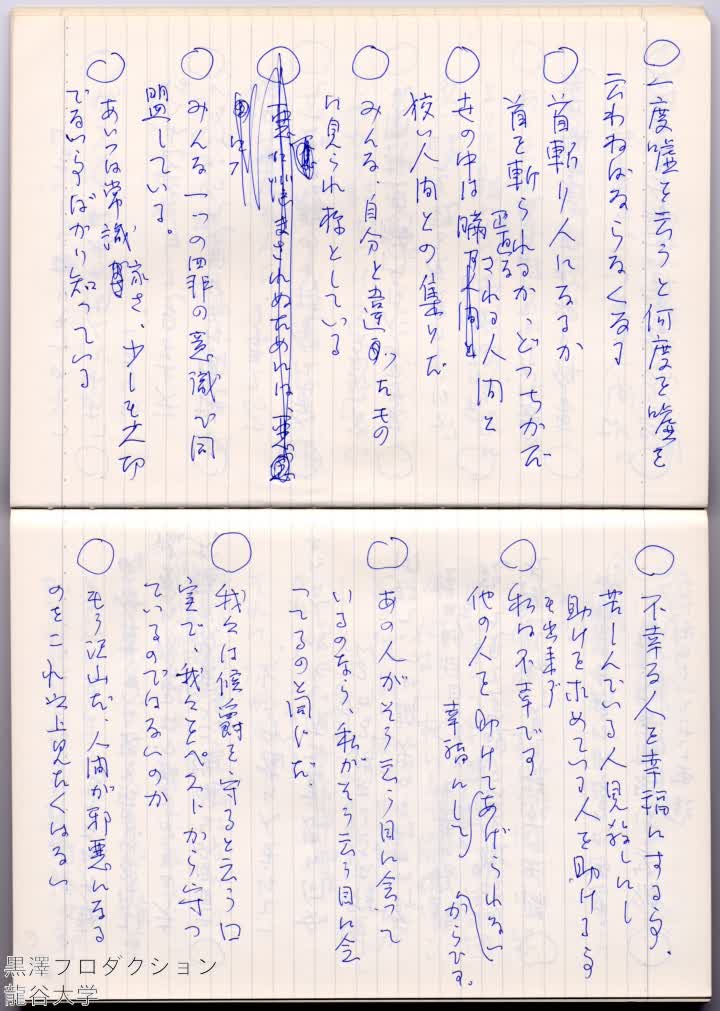 ○ 一度嘘を云うと何度も嘘を
云わねばならなくなる
○ 首斬り人になるか
首を斬られるか、どっちかだ
○ 世の中は騙す人間と
騙される人間と
狡い人間との集りだ
○ みんな、自分と違ったもの
に見られ様としている
○
○ みんな一つの罪の意識で同
盟している。
○ あいつは常識家さ、少しも大切
でない事ばかり知っている
○ 不幸な人を幸福にする事、
苦しんでいる人見殺しにし
助けを求めている人を助ける事
も出来ず
○ 私は不幸です
他の人を助けてあげられない
幸福にして
からです。
○ あの人がそう云う目に会って
いるのなら、私がそう云う目に会
ってるのと同じだ。
○ 我々は侯爵を守ると云う口
実で、我々をペストから守っ
ているのではないのか
○ もう沢山だ、人間が邪悪になる
のをこれ以上見たくはない
黒澤プロダクション
龍谷大学